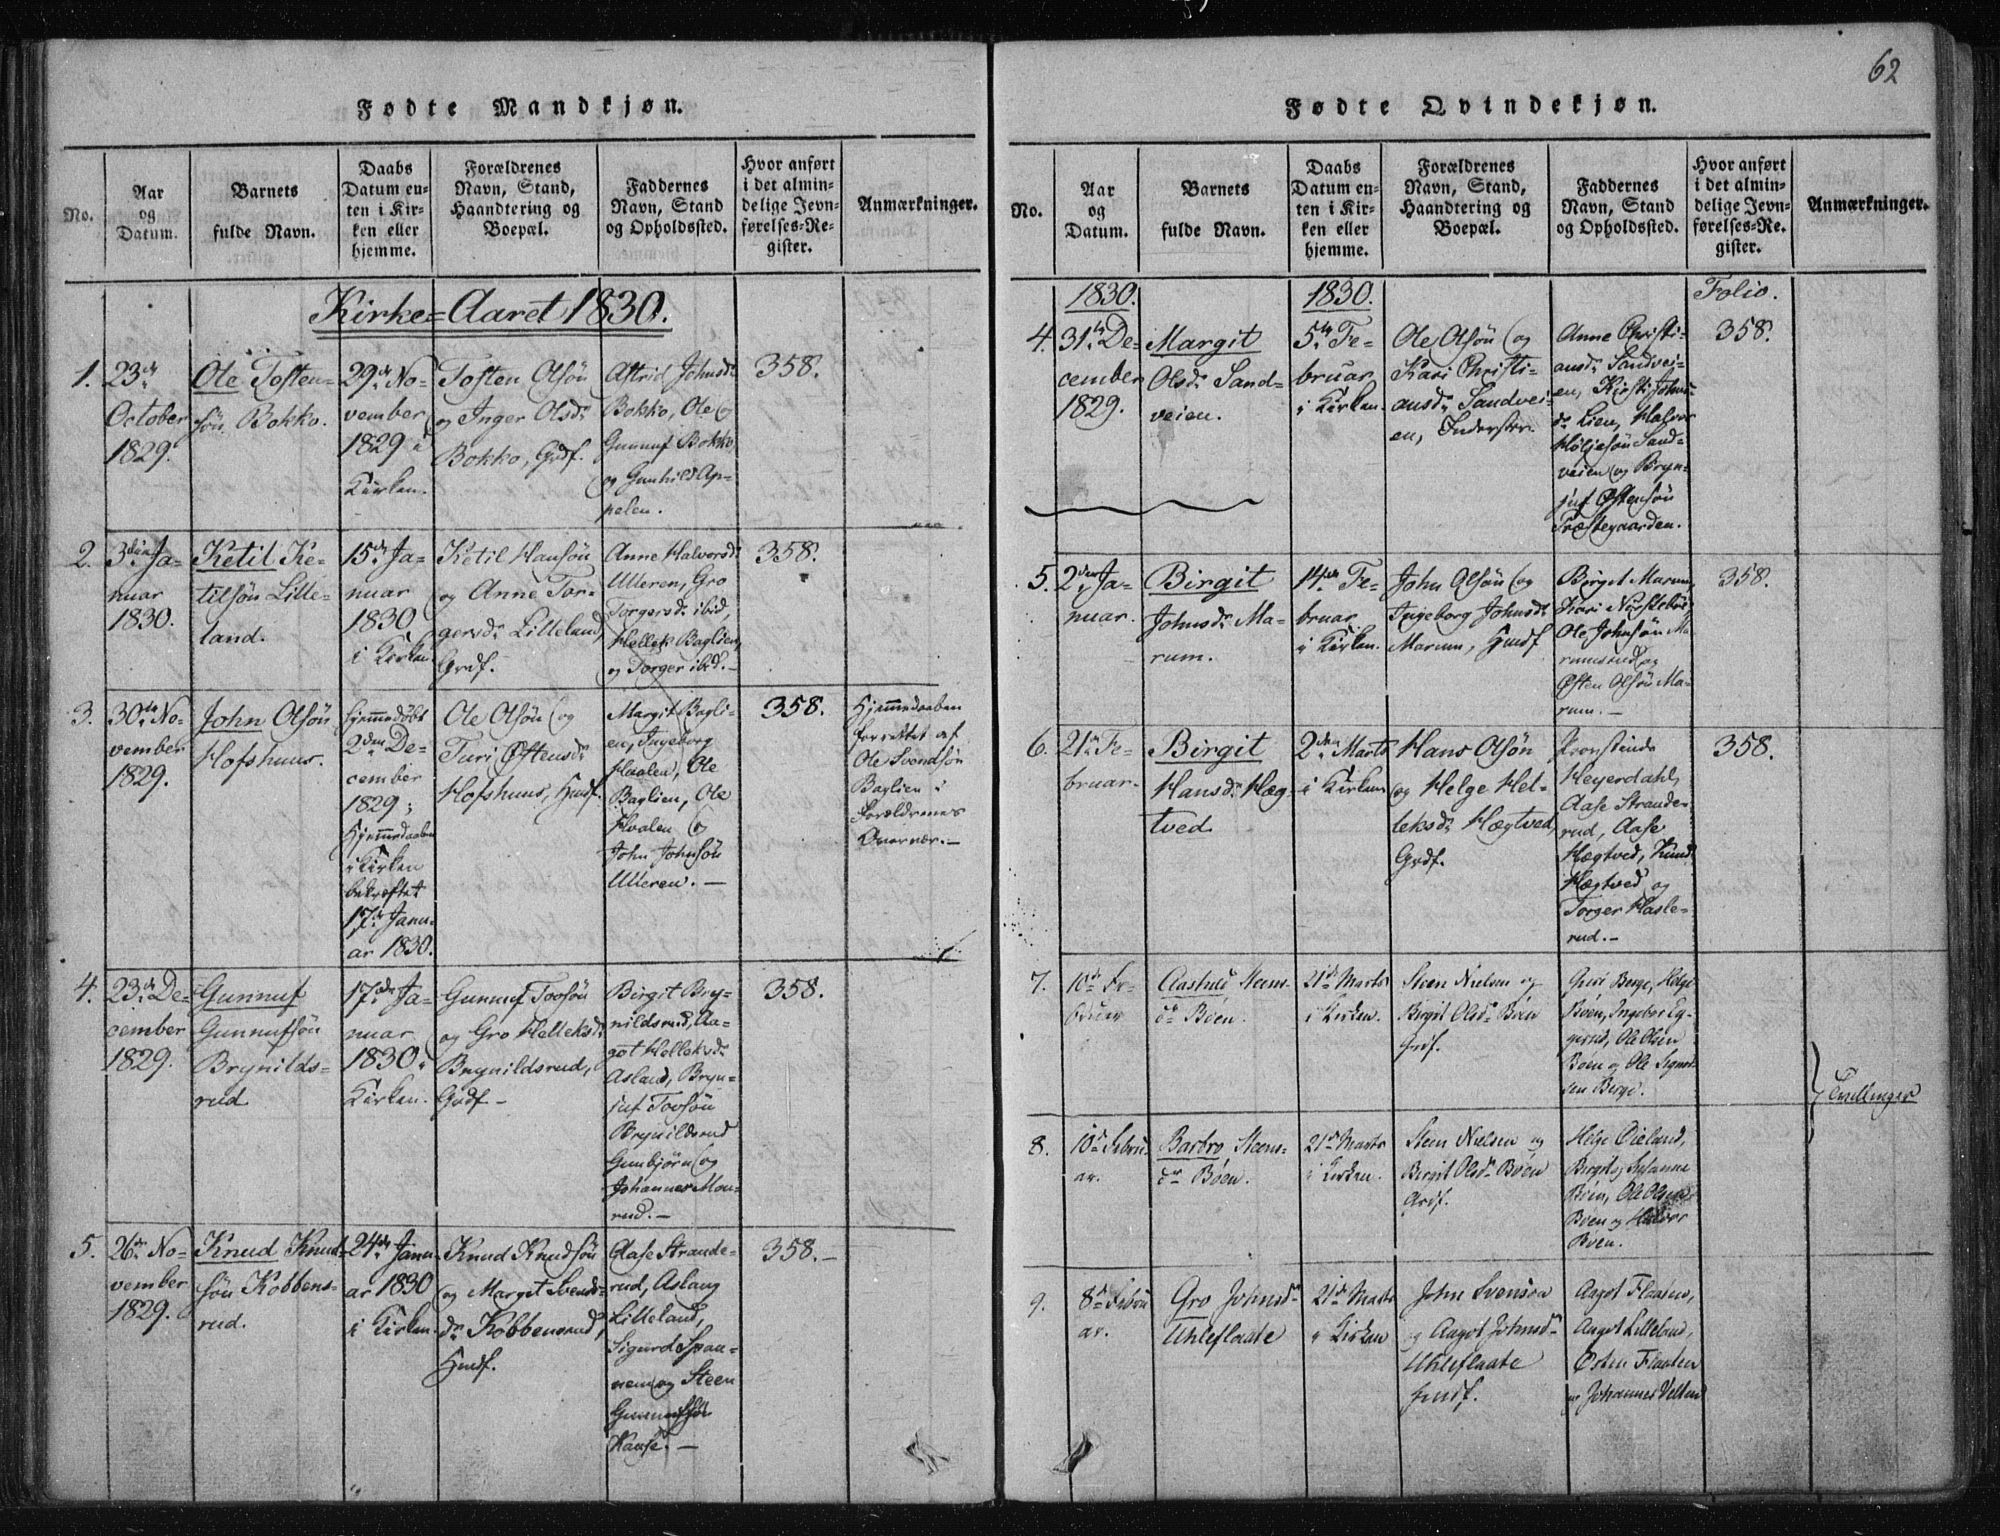 62
Fødte Mandkjøn.
No.
Aar
og
Datum.
Barnets
fulde Navn.
Daabs
Datum en-
ten i Kir-
ken eller
hjemme.
Forældrenes
Navn, Stand,
Haandtering og
Boepæl.
Faddernes
Navn, Stand
og Opholdssted.
Hvor anført
i det almin-
delige Jevn-
førelses-Re-
gister.
Anmærkninger.
Kirke-Aaret 1830.
1.
23de
October
1829.
Ole Tosten-
søn Bokko.
29de No-
vember
1829 i
Kirken.
Tosten Olsøn
og Inger Olsdr
Bokko, Grdf.
Astrid Johnsdr
Bokko, Ole og
Gunnuf Bokko,
og Gunhild Ap-
pelen.
358.
2.
3die Ja-
nuar
1830.
Ketil Ke-
tilsøn Lille-
land.
15de Ja-
nuar
1830
i Kirken
Ketil Hansøn
og Anne Tor-
gersdr Lilleland,
Grdf.
Anne Halvorsdr
Ulleren, Gro
Torgersdr ibid,
Hellek Baglien,
og Torger ibid.-
358.
3.
30te No-
vember
1829.
John Olsøn
Hofshuus.
hjemmedøbt
2den De-
cember
1829;
Hjemmedaaben
i Kirken
bekræftet
17de Janu-
ar 1830.
Ole Olsøn og
Turi Østensdr
Hofshuus, Husf.
Margit Bagli-
en, Ingeborg
Haalen, Ole
Baglien, Ole
Hvalen og
John Johnsøn
Ulleren.-
358.
Hjemmedaaben
forrettet af
Ole Svendsøn
Baglien i
Forældrenes
Overvær.-
4.
23de De-
cember
1829.
Gunnuf
Gunnufsøn
Brynilds-
rud
17de Ja-
nuar
1830 i
Kirken.
Gunnuf Tovsøn
og Gro Helleksdr
Brynildsrud,
Grdf-
Birgit Bry-
nildsrud, Aa-
got Helleksdr
Asland, Bryn-
juf Tovsøn
Brynildsrud
Gunbjørn og
Johannes Mou-
rud.-
358.
5.
26de No-
vember
1829.
Knud Knud-
søn Kobbens-
rud.
24de Janu-
ar 1830
i Kirken.
Knud Knudsøn
og Margit Svends-
dr Kobbensrud,
Husf.
Aase Strande-
rud, Aslaug
Lilleland,
Sigurd Span-
nem og Steen
Gunnufsøn
Kause.-
358.-
Fødte Qvindekjøn.
No.
Aar
og
Datum.
Barnets
fulde Navn.
Daabs
Datum en-
ten i Kir-
ken eller
hjemme.
Forældrenes
Navn, Stand,
Haandtering og
Boepæl.
Faddernes
Navn, Stand
og Opholdssted.
Hvor anført
i det almin-
delige Jevn-
førelses-Re-
gister.
Anmærkninger.
1830.
1830.
Folio.
4.
31te De-
cember
1829.
Margit
Olsdr Sand-
veien.
5te Fe-
bruar
i Kirken.
Ole Olsøn og
Kari Christi-
ansdr Sandvei-
en, Inderster.
Anne Christi-
ansdr Sandvei-
en, Kirsti Johns-
dr Lien, Halvor
Høljesøn Sand-
veien og Bryn-
juf Østensøn
Præstegaarden.
358.
5.
2den Ja-
nuar.
Birgit
Johnsdr Ma-
rum.
14de Fe-
bruar
i Kirken.
John Olsøn og
Ingeborg Johnsdr
Marum, Husf
Birget Marum,
Kari Nørstebøe
Ole Johnsøn Ma-
rumsrud og
Østen Olsøn Ma-
rum.-
358.
6.
21de Fe-
bruar.
Birgit
Hansdr Hæg-
tved
2den Marts
i Kirken
Hans Olsøn
og Helge Hel-
leksdr Hægtved,
Grdf.
Heyerdahl,
Aase Strande-
rud, Aase
Hægtved, Knud
Hægtved og
Torger Hasle-
rud.-
358.
7.
10de Fe-
bruar
Aastrid Steens-
dr Bøen.
21de Marts
i Kirken.
Steen Nielsen og
Birgit Olsdr Bøen
Grdf.
Guri Berge, Helge
Bøen, Ingebor Eg-
gerud, Ole Olsen
Bøen og Ole Sigurd-
sen Berge.
Tvillinger
8.
10de Febru-
ar.
Barbro Steens-
dr Bøen.
21de Marts
i Kirken.
Steen Nielsen og
Birgit Olsdr Bøen
Grdf.
Helge Øieland,
Birgit og Susanne
Bøen, Ole Olsen
Bøen og Halvor
Bøen.
9.
8de Febru-
ar.
Gro Johnsdr
Uhleflaate
21de Marts
i Kirken
John Svenson
og Aagot Johnsdr
Uhleflaate
Husf.
Aagot Flaaten,
Aagot Lilleland,
Østen Flaaten
og Johannes Velten